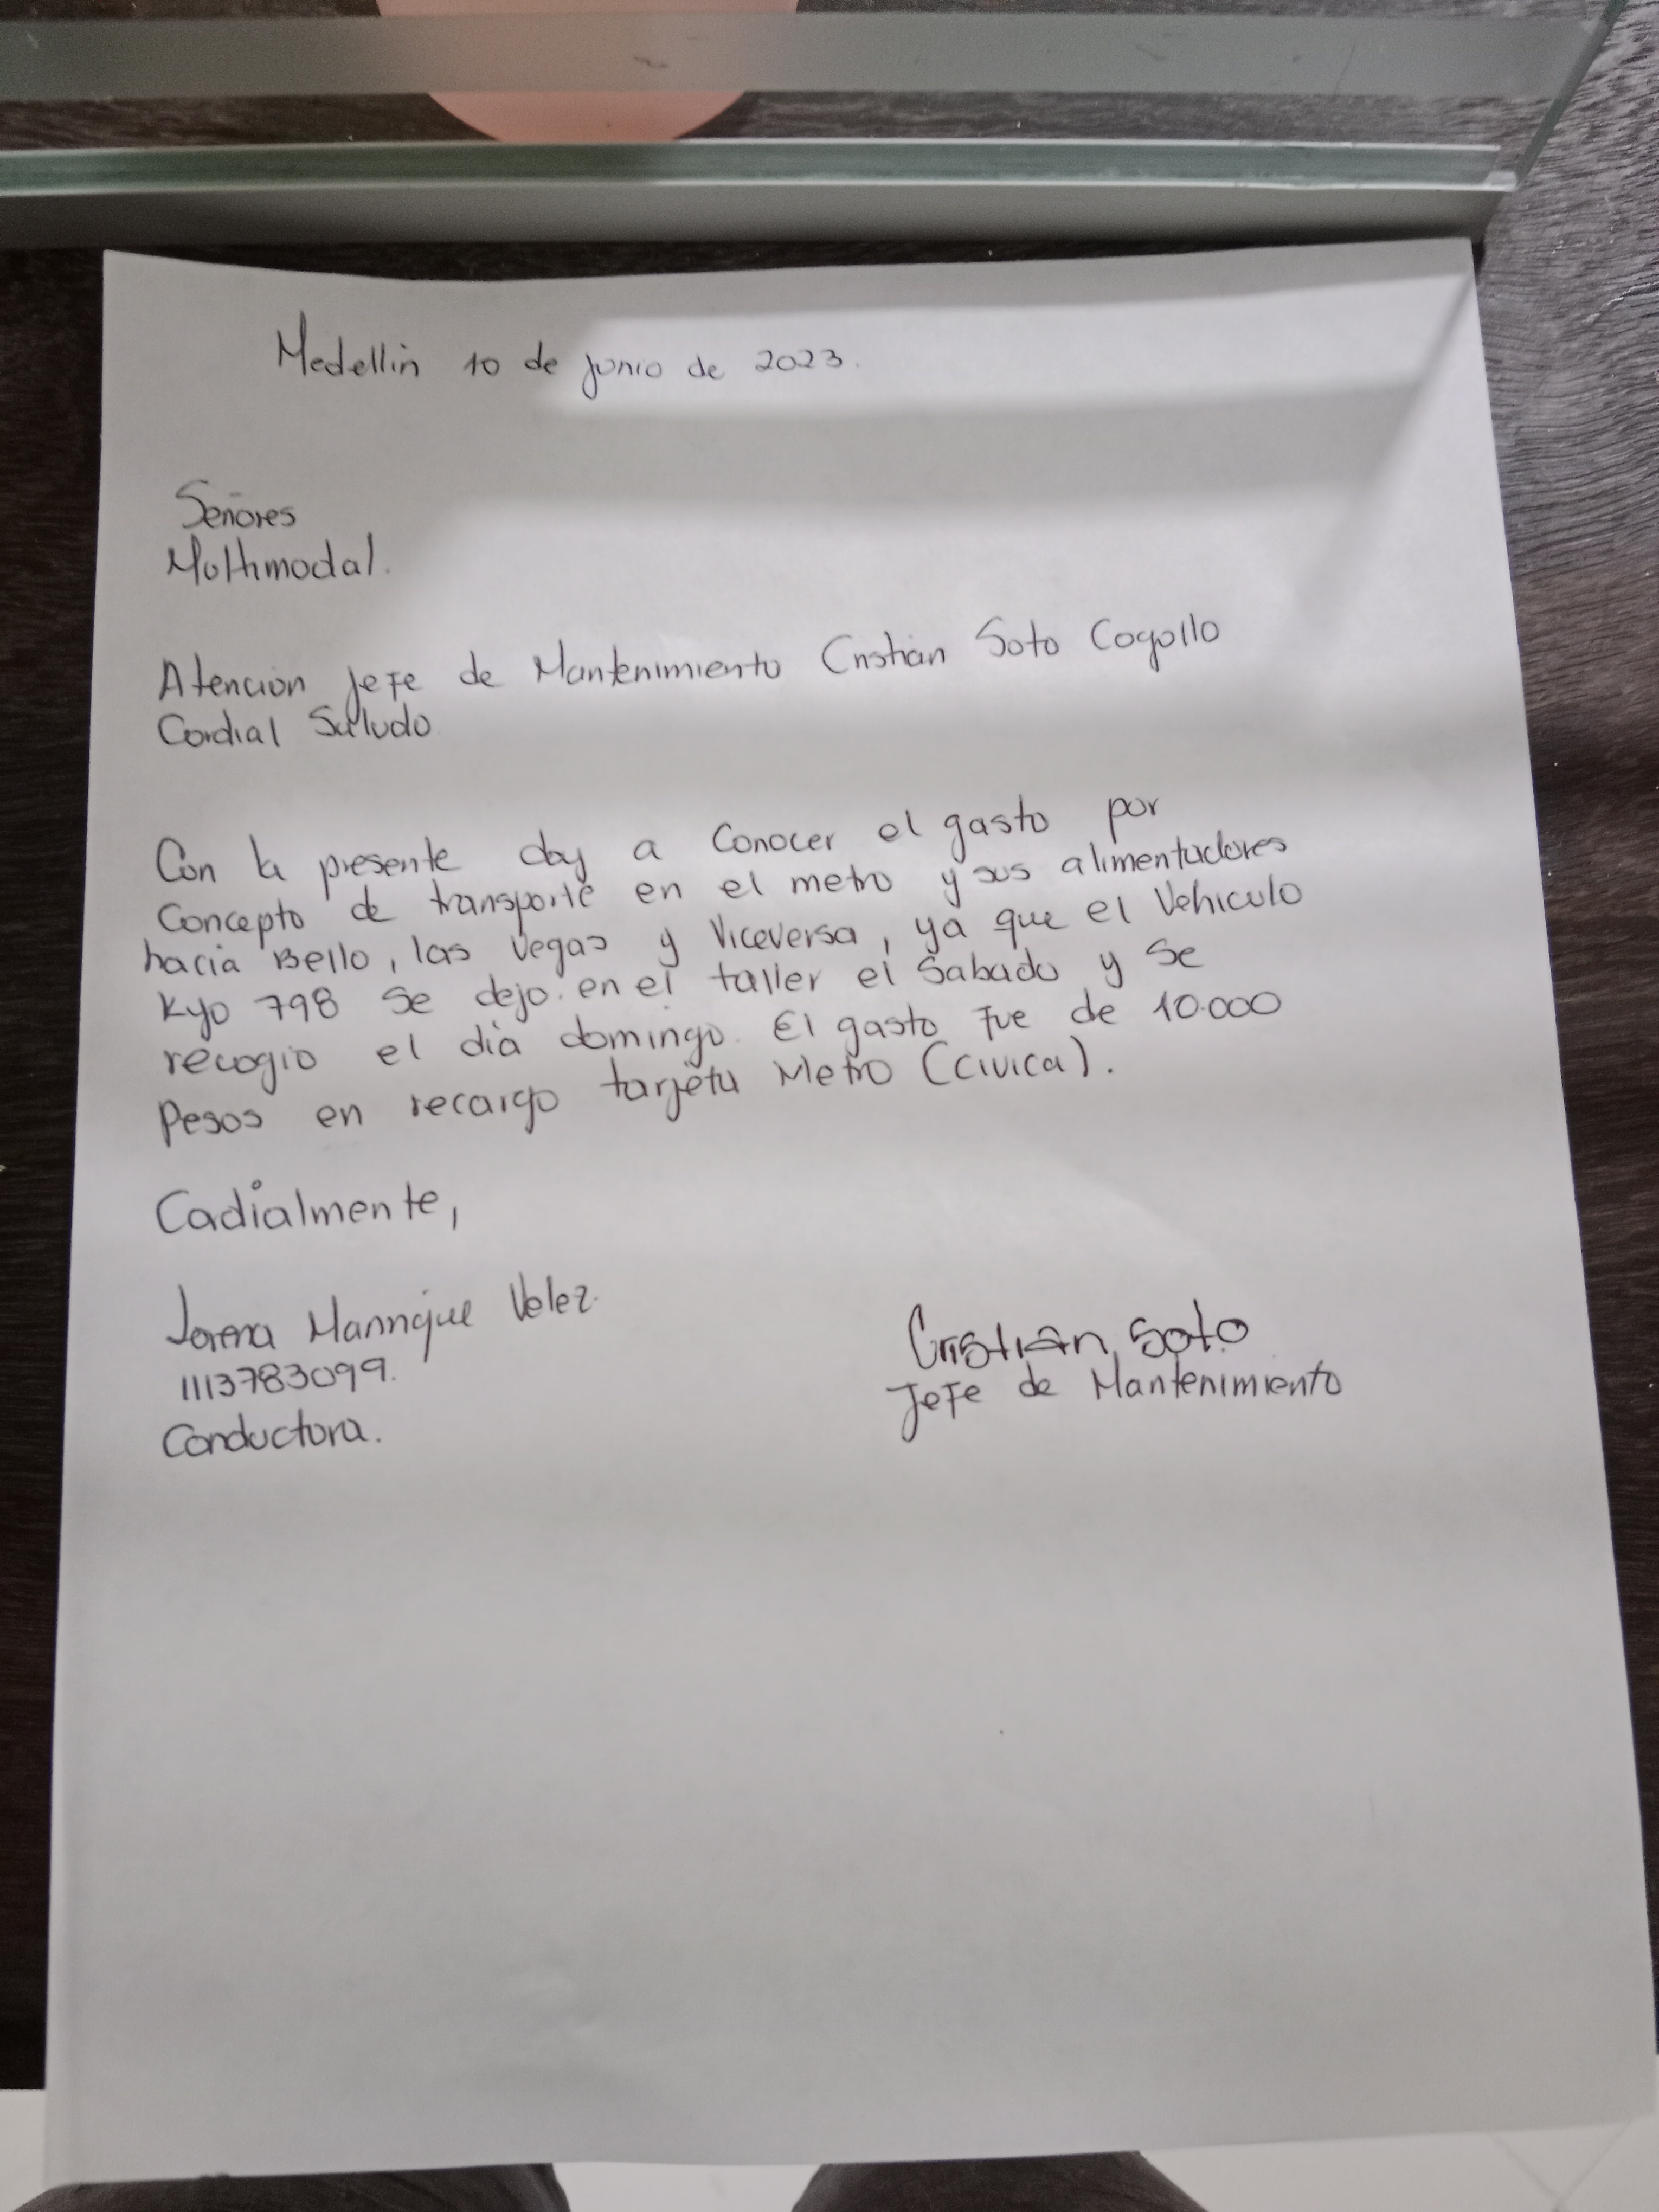 Medellin 10 de junio de 2023.
Señores
Multimodal.
Atencion jefe de Mantenimiento Cristian Soto Cogollo
Cordial Saludo
Con la presente doy a Conocer el gasto por
Concepto de transporte en el metro y sus alimentadores
hacia Bello, las Vegas y Viceversa, ya que el Vehiculo
Kyo 798 se dejo en el taller el Sabado y se
recogio el dia domingo. El gasto fue de 10.000
Pesos en recargo tarjeta Metro (civica).
Cadialmente,
Lorena Manrrique Velez.
1113783099.
Conductora.
Cristian Soto
Jefe de Mantenimiento